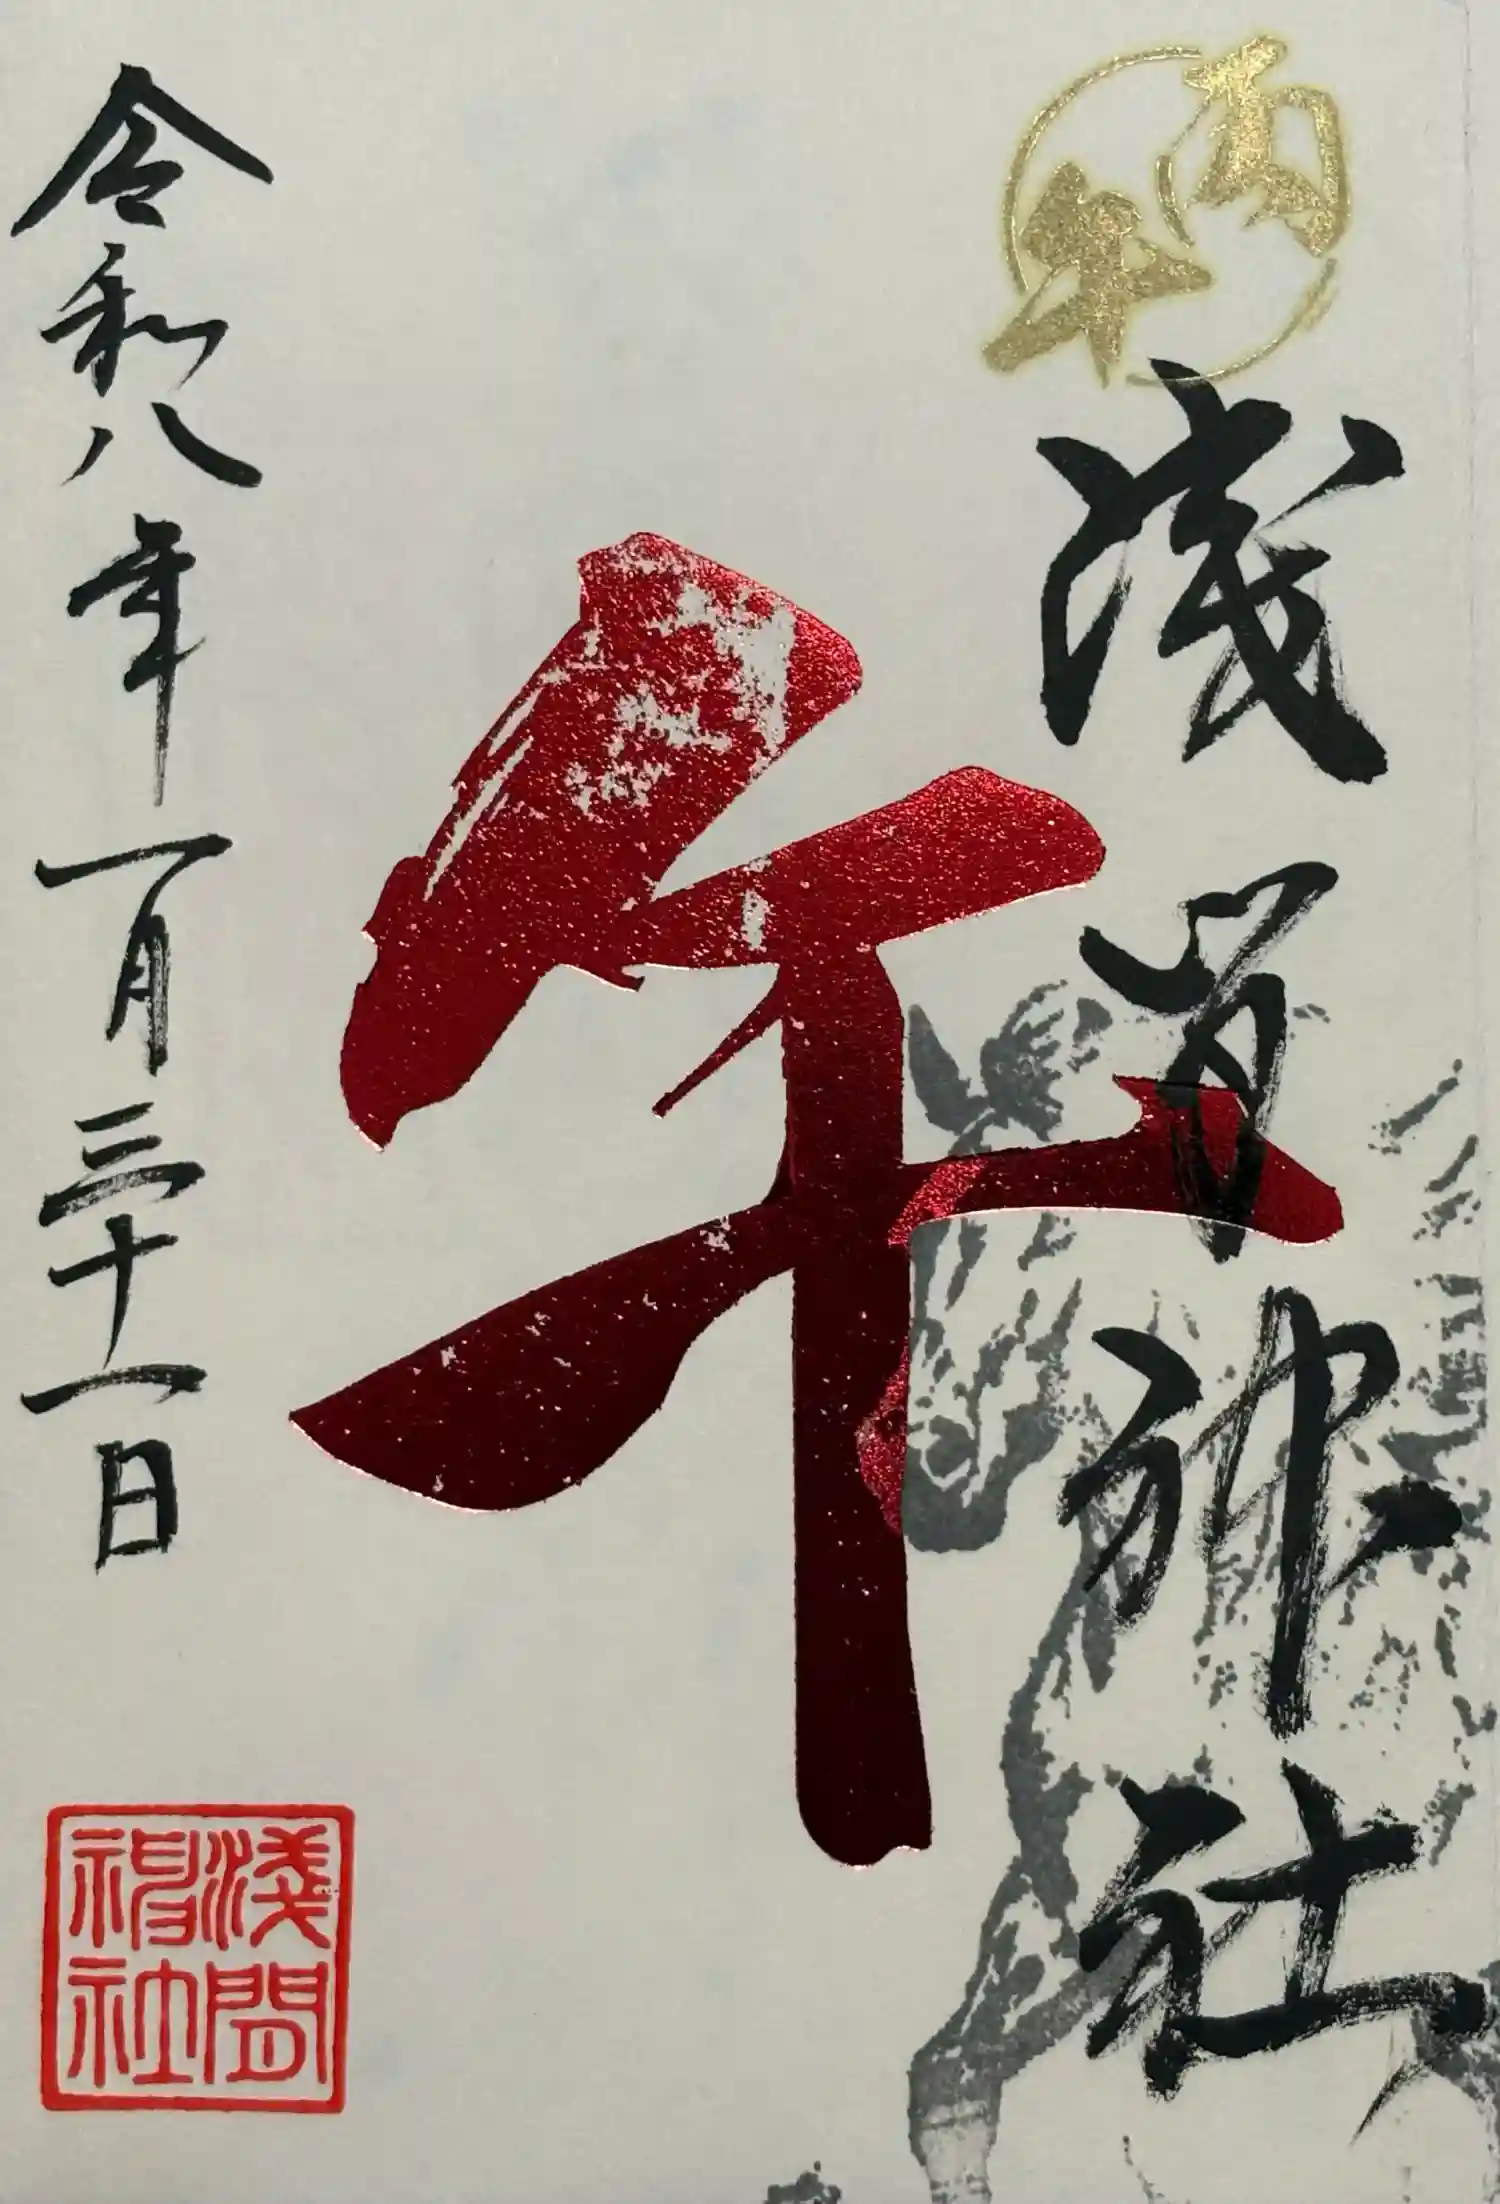 丙午
浅間神社
午
令和八年一月三十一日
淺間
神社